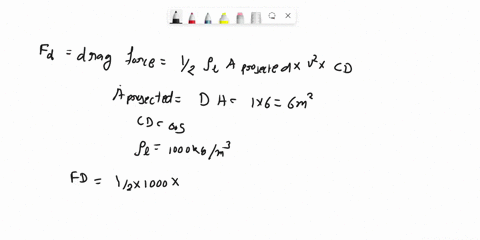 Fd = drag force = 1/2 ρl A projected x v² x CD
A projected = D H = 1x6 = 6m²
CD = 0.5
ρl = 1000 kg/m³
FD = 1/2 x 1000 x